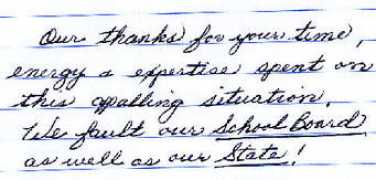 Our thanks for your time,
energy & expertise spent on
this appalling situation.
We fault our School Board
as well as our State!